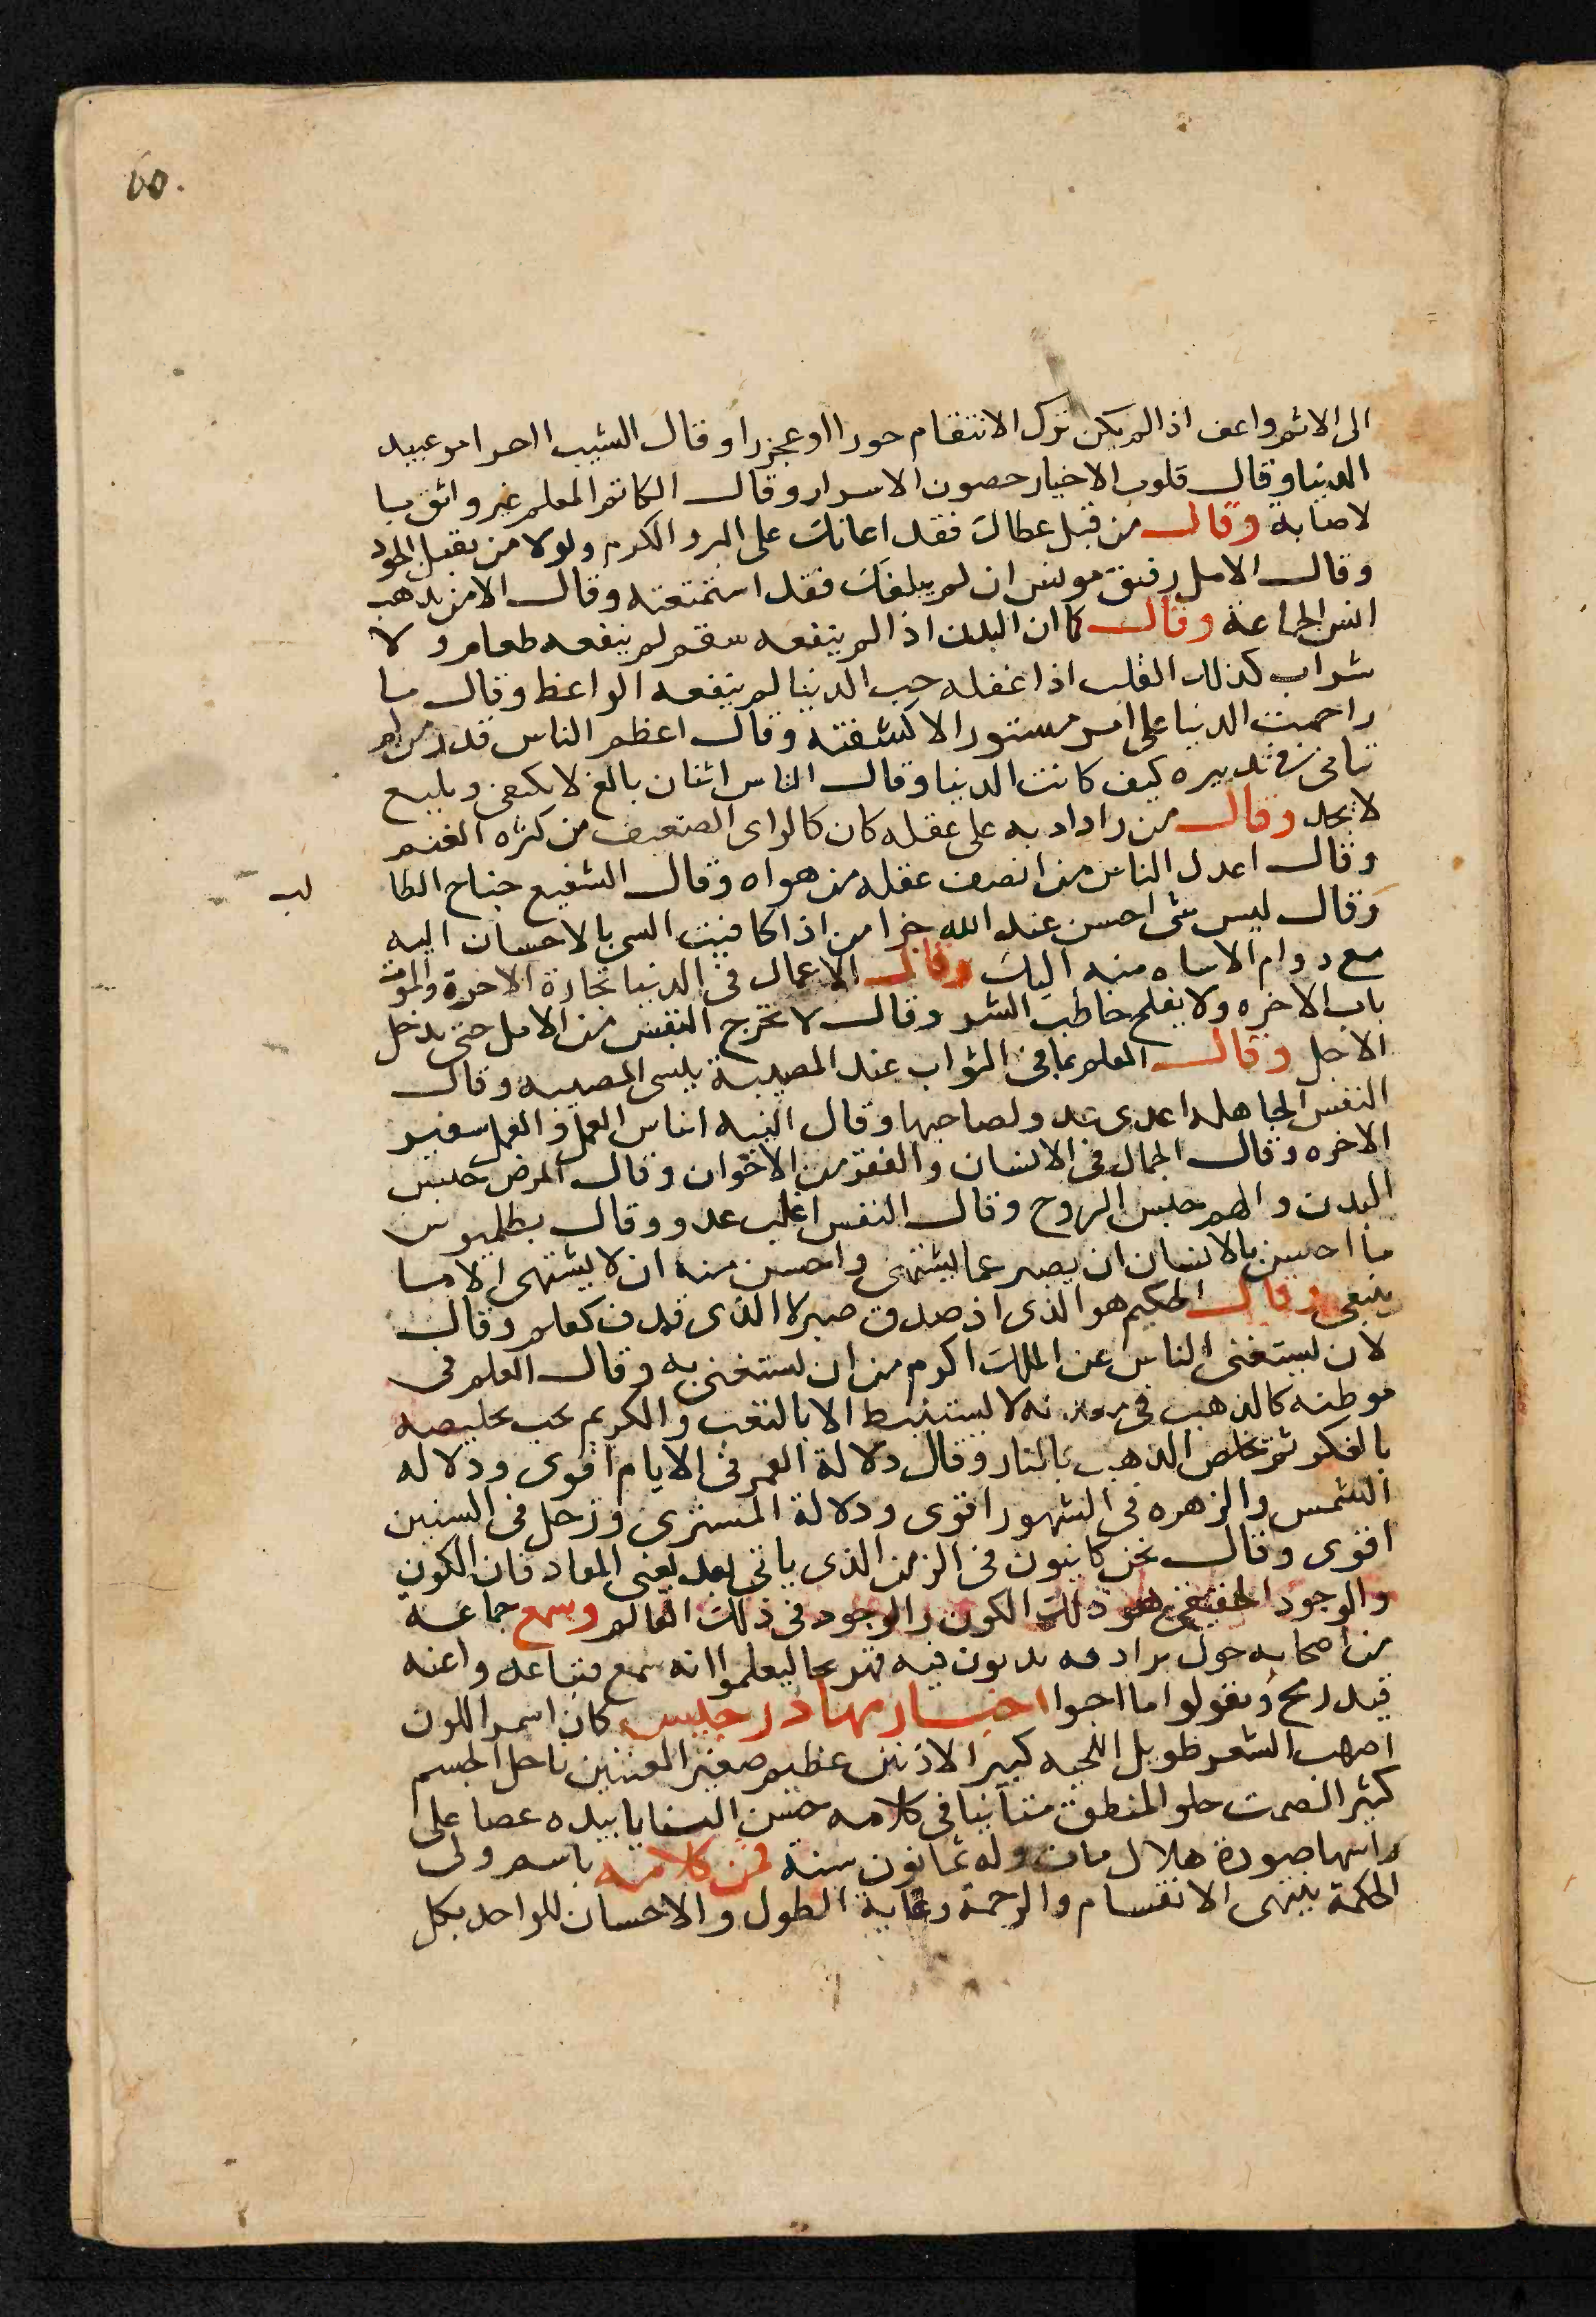 60.
الى الاثم واعف اذا لم يكن ترك الانتقام حورا او عجزا وقال الشيب احرام وعبيد
الدنيا وقال قلوب الاخيار حصون الاسرار وقال الكاتم المعلم غير واثق با
لاصابة وقال من قبل عطاك فقد اعانك على البر والكرم ولولا من يقبل الجود
وقال الامل رفيق مونس ان لم يبلغك فقد استمتعته وقال الامن يدهب
انس الجماعة وقال كما ان البدن اذا لم ينفعه سقم لم ينفعه طعام ولا
شراب كذلك القلب اذا غفله حب الدنيا لم ينفعه الواعظ وقال ما
راحمت الدنيا على امر مستور الا كشفته وقال اعظم الناس قدرا من لم
في تدبيره كيف كانت الدنيا وقال الناس اثنان بالغ لا يكتفى
لا يجد وقال من زاد ادبه على عقله كان كالراى الضعيف من كثره الغنم
وقال اعدل الناس من انصف عقله من هواه وقال الشفيع جناح الطا
لب
وقال ليس شى احسن عند الله خرا من اذا كافيت السى بالاحسان اليه
مع دوام الاساه منه اليك وقال الاعمال فى الدنيا تجارة الاخرة والموت
باب الاخره ولا يفلح خاطب الشر وقال لا تخرج النفس من الامل حتى يدخل
الاجل وقال العلم بما فى الثواب عند المصيبة ينسى المصيبه وقال
النفس الجاهله اعدى عدو لصاحبها وقال النيه اساس العمل والعمل سفير
الاخره وقال الجمال فى الانسان والفقر من الاخوان وقال المرض حبس
البدن والهم حبس الروح وقال النفس اغلب عدو وقال بطلميوس
ما احسن بالانسان ان يصبر عما يشتهى واحسن منه ان لا يشتهى الا ما
ينبغى وقال الحكيم هو الذى اذا صدق صبر لا الذى قدف كعلم وقال
لان يستغنى الناس عن الملك اكرم من ان يستغنى به وقال العلم فى
موطنه كالذهب فى لا يستنبط الا بالتعب والكريم يجب تخليصه
بالفكر ثم تخلص الذهب بالنار وقال دلالة القمر فى الايام اقوى ودلاله
الشمس والزهره فى الشهور اقوى ودلالة المشترى وزحل فى السنين
اقوى وقال نحن كاينون فى الزمن الذى ياتى بعد يعنى المعاد فان الكون
والوجود الحقيقى هو ذلك الكون والوجود فى ذلك العالم وسمع جماعة
من اصحابه حول يدبون فيه فهز رمحا ليعلموا انه سمع فتباعدوا عنه
قيد رمح ويقولوا ما احبوا اخبار مهادرجيس كان اسمر اللون
اصهب الشعر طويل اللحيه كبير الاذنين عظيم صغير العينين ناحل الجسم
كثير الصمت حلو المنطق متانيا فى كلامه حسن الثنايا بيده عصا على
راسها صورة هلال مات وله ثمانون سنة فمن كلامه باسم ولى
الحكمة ينتهى الانقسام والرحمة وغاية الطول والاحسان للواحد بكل